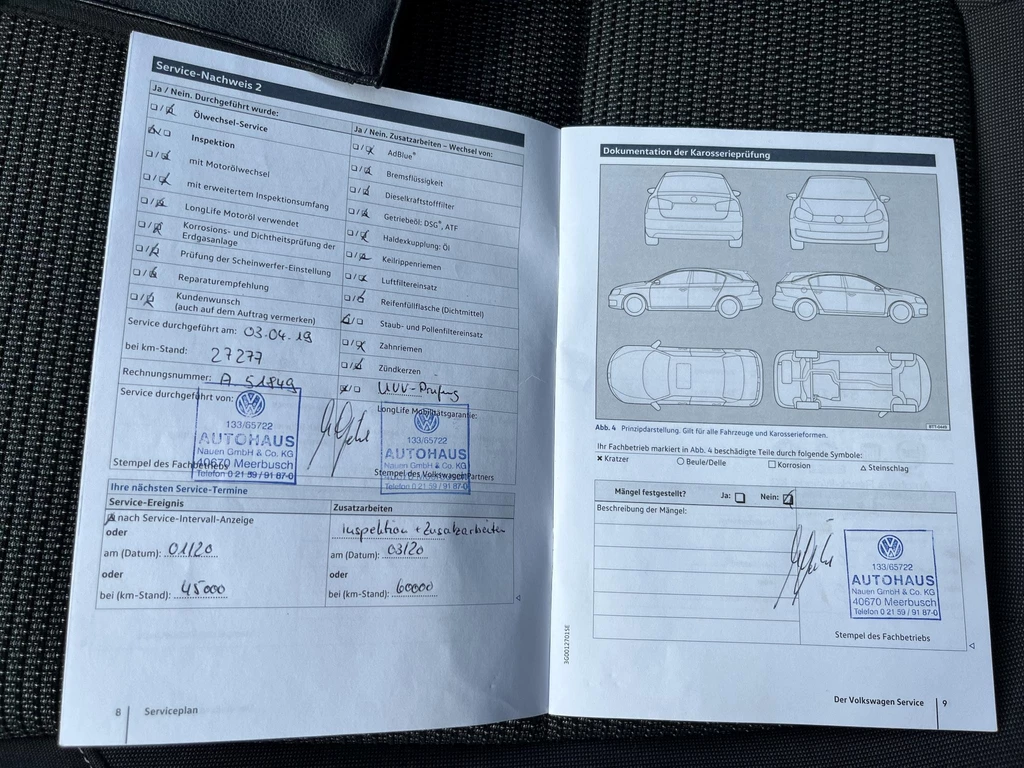 Service-Nachweis 2
Ja / Nein. Durchgeführt wurde:
Ölwechsel-Service
Inspektion
mit Motorölwechsel
mit erweitertem Inspektionsumfang
LongLife Motoröl verwendet
Korrosions- und Dichtheitsprüfung der
Erdgasanlage
Prüfung der Scheinwerfer-Einstellung
Reparaturempfehlung
Kundenwunsch
(auch auf dem Auftrag vermerken)
Service durchgeführt am: 03.04.19
bei km-Stand: 27277
Rechnungsnummer: A 51849
Service durchgeführt von:
133/65722
AUTOHAUS
Nauen GmbH & Co. KG
40670 Meerbusch
Telefon 0 21 59 / 91 87-0
Stempel des Fachbetriebs
Ja / Nein. Zusatzarbeiten – Wechsel von:
AdBlue®
Bremsflüssigkeit
Dieselkraftstofffilter
Getriebeöl: DSG®, ATF
Haldexkupplung: Öl
Keilrippenriemen
Luftfiltereinsatz
Reifenfüllflasche (Dichtmittel)
Staub- und Pollenfiltereinsatz
Zahnriemen
Zündkerzen
UVV-Prüfung
LongLife Mobilitätsgarantie:
133/65722
AUTOHAUS
Nauen GmbH & Co. KG
40670 Meerbusch
Telefon 0 21 59 / 91 87-0
Stempel des Volkswagen Partners
Ihre nächsten Service-Termine
Service-Ereignis
nach Service-Intervall-Anzeige
oder
am (Datum): 01/20
oder
bei (km-Stand): 45000
Zusatzarbeiten
Inspektion + Zusatzarbeiten
am (Datum): 03/20
oder
bei (km-Stand): 60000
8 Serviceplan
Dokumentation der Karosserieprüfung
Abb. 4 Prinzipdarstellung. Gilt für alle Fahrzeuge und Karosserieformen.
Ihr Fachbetrieb markiert in Abb. 4 beschädigte Teile durch folgende Symbole:
Kratzer Beule/Delle Korrosion Steinschlag
Mängel festgestellt? Ja: Nein:
Beschreibung der Mängel:
133/65722
AUTOHAUS
Nauen GmbH & Co. KG
40670 Meerbusch
Telefon 0 21 59 / 91 87-0
Stempel des Fachbetriebs
3G0012701SE
Der Volkswagen Service 9